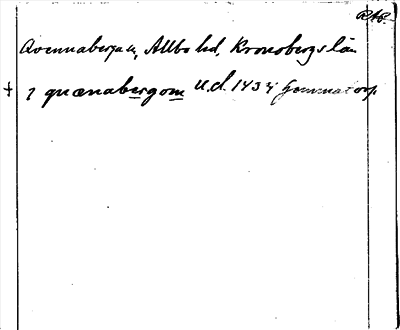 RAP.
Qvennaberga u, Allbo hd, Kronobergs län
† i quænabergom u.d. 1434 Gemmatorp